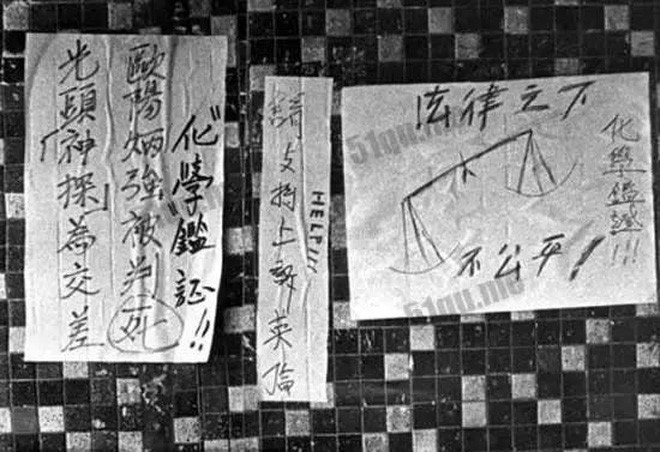 "化學"鑑証!!
歐陽炳強被判死
光頭「神探」為交差
HELP!!!
請支持上訴英倫
法律之下
不公平!
化學鑑謎!!!
51qu.me
51qu.me